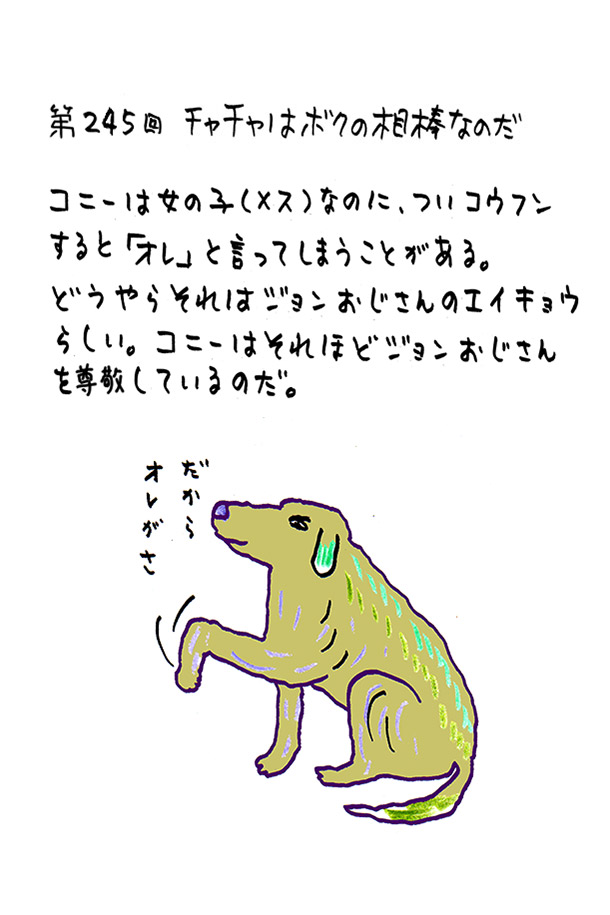 第245回 チャチャはボクの相棒なのだ
コニーは女の子(メス)なのに、ついコウフン
すると「オレ」と言ってしまうことがある。
どうやらそれはジョンおじさんのエイキョウ
らしい。コニーはそれほどジョンおじさん
を尊敬しているのだ。
だから
オレがさ